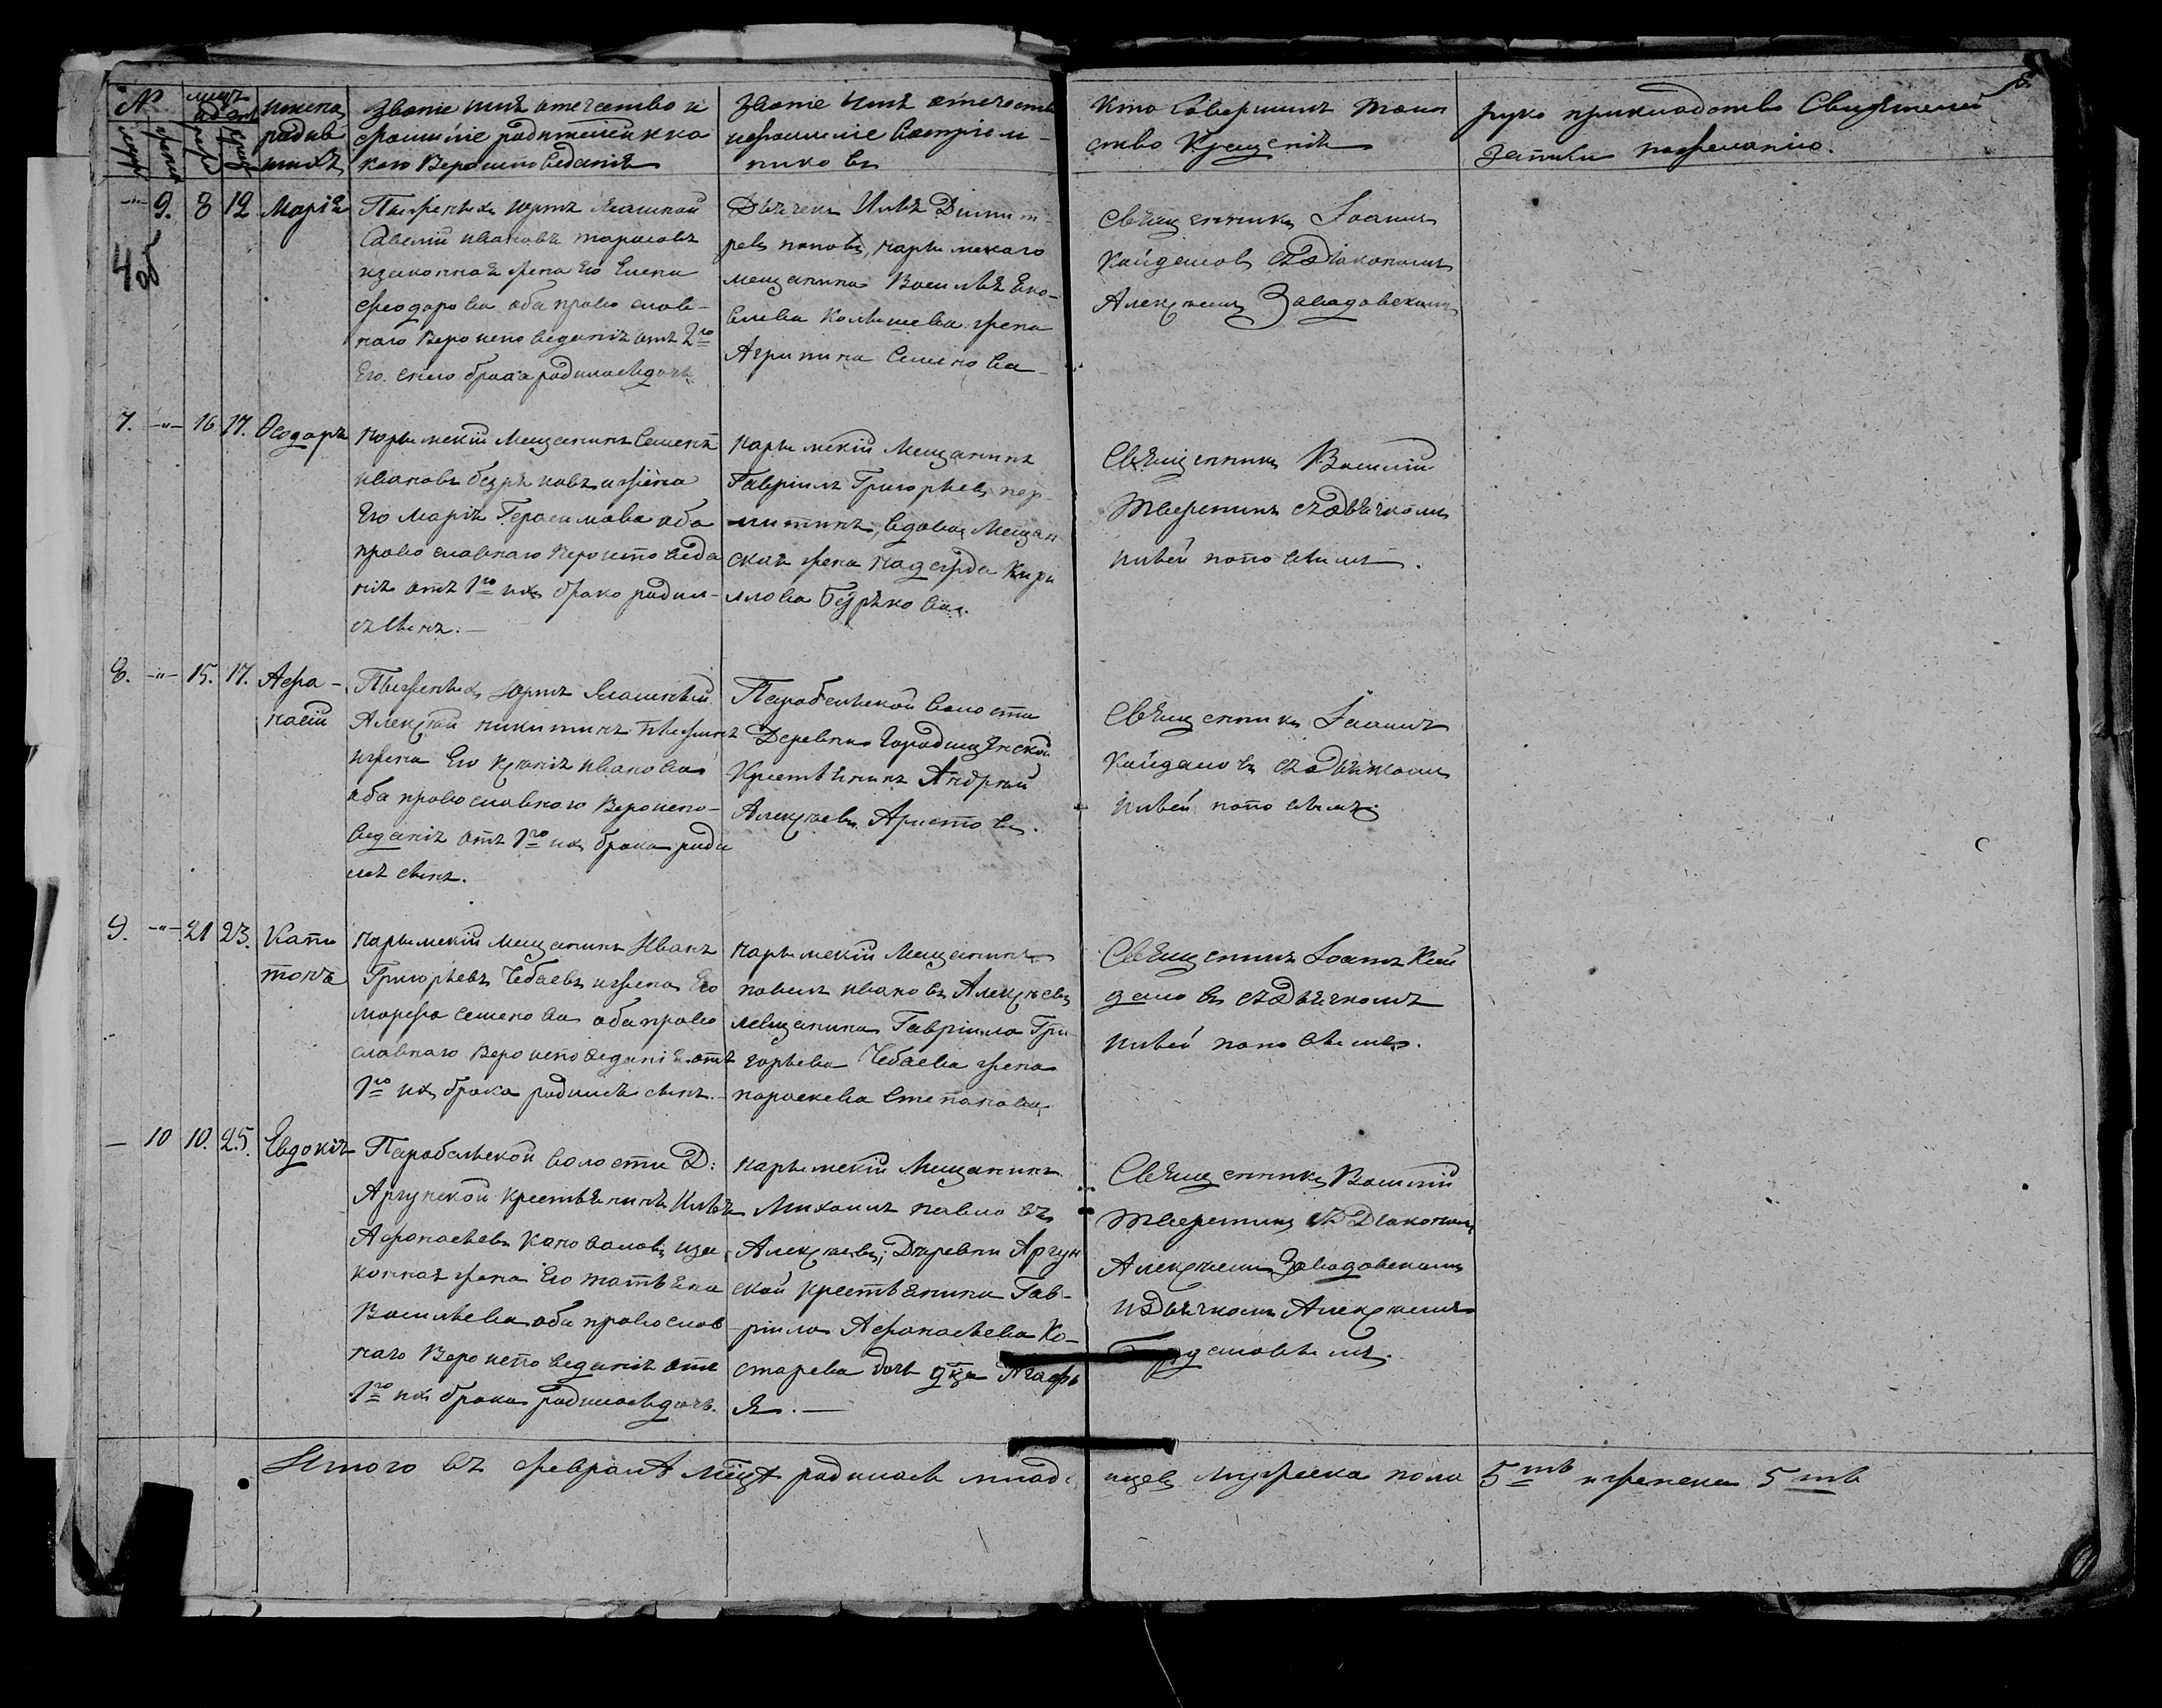 №
мужес
женск
месц и дни
рожд
крещ
имена
родив
шихъ
Званіе имя отечество и
фамиліе родителей и ка
кого Вероисповеданія
Званіе Имя отечество
и фамиліе Восприем-
никовъ
Кто Совершилъ таин
ство Крещенія
руко прикладство Свидетелей
записи по желанію.
-"- 9. 8 12 Марія
Пыжиныхъ юртъ Ясашной
Савелій ивановъ тарасовъ
изаконная жена Его Елена
феодорова оба право слав-
наго Вероисповеданія отъ 2го
Его брака родилась дочь
Дьячекъ Илья Димит-
ревъ поповъ, нарымскаго
мещанина Василья Яко-
влева Колышева жена
Агрипина Семенова
Священникъ Іоаннъ
Кайдаловъ съ діакономъ
Алексеемъ Завадовскимъ
48
7. -"- 16 17. Ѳеодоръ
Нарымскій Мещанинъ Семенъ
ивановъ и жена
Его Марія Герасимова оба
право славнаго Вероисповеда
нія отъ 1го ихъ брака родил-
ся сынъ.
нарымскій Мещанинъ
Гавріилъ Григорьевъ пер-
митинъ, вдова Мещан
ская жена надежда Кири
лова
Священникъ Василій
Тверитинъ съ дьячкомъ
ильей поповымъ.
8. -"- 15. 17. Афа-
насій
Пыжиныхъ Юртъ Ясашный
Алексей никитинъ
и жена Его ксенія иванова
оба право славнаго Вероиспо-
веданія отъ 1го ихъ брака роди
лся сынъ.
Парабельской Волости
Деревни Городищенской
Крестьянинъ Андрей
Алексеевъ Аристовъ.
Священникъ Іоаннъ
Кайдаловъ съ Дьячкомъ
ильей поповымъ.
9. -"- 21 23. Капи
тонъ
нарымскій мещанинъ Иванъ
Григорьевъ Чебаевъ и жена Его
марфа семенова оба право
славнаго Вероисповеданія отъ
1го ихъ брака родился сынъ.
нарымскій Мещанинъ
павелъ ивановъ Алексеевъ
мещанина Гавріила Гри
горьева Чебаева жена
параскева Степанова
Священникъ Іоаннъ Кай
даловъ съ дьячкомъ
ильей поповымъ.
— 10 10. 25. Евдокія
Парабельской волости Д:
Аргунской крестьянинъ Илья
Афанасьевъ Коноваловъ иза
конная жена Его татьяна
Васильева оба православ
наго Вероисповеданія отъ
1го ихъ брака родилась дочь.
нарымскій Мещанинъ
Михаилъ павловъ
Алексеевъ; Деревни Аргун
ской крестьянина Гав-
ріила Афанасьева Ко-
старева дочь дца Агафь
я.—
Священникъ Василій
Тверитинъ съ Діакономъ
Алексеемъ Завадовскимъ
и дьячкомъ Алексеемъ
Итого въ феврале мцѣ родилось млад
нцевъ мужеска пола 5ть и женска 5ть